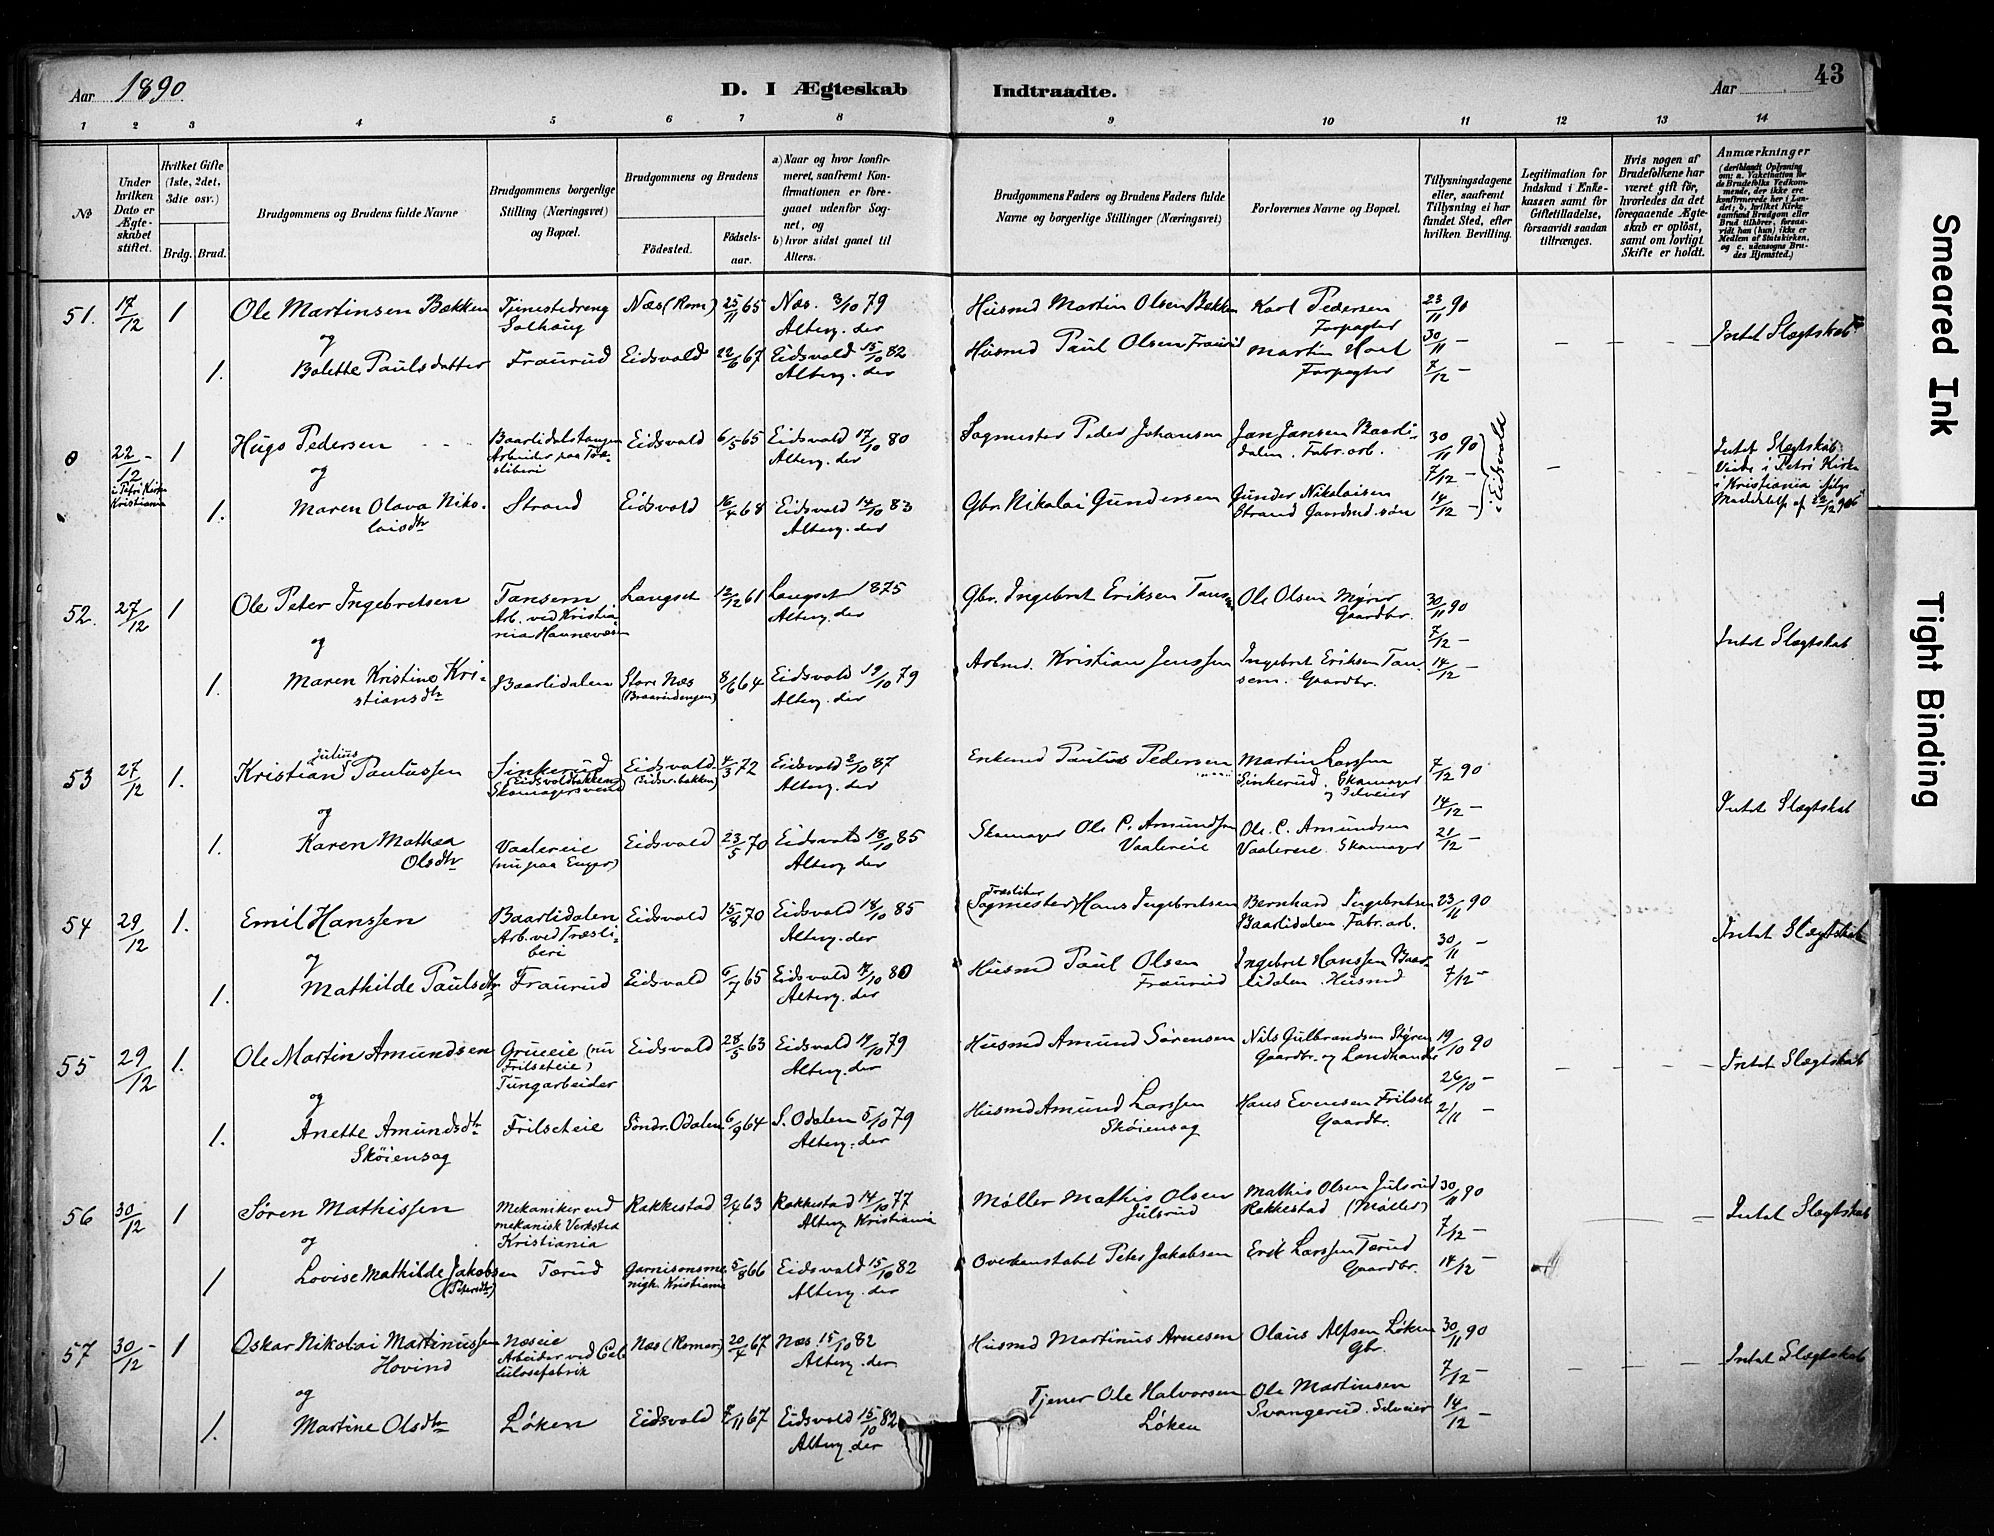 Aar 1890. D. I Ægteskab Indtraadte. Aar 43
1 2 3 4 5 6 7 8 9 10 11 12 13 14
№
Under hvilken Dato er Ægteskabet stiftet.
Hvilket Gifte (1ste, 2det, 3die osv.)
Brdg. Brud.
Brudgommens og Brudens fulde Navne
Brudgommens borgerlige Stilling (Næringsvei) og Bopæl.
Brudgommens og Brudens
Födested. Födsels-aar.
a) Naar og hvor konfirmeret, saafremt Konfirmationen er foregaaet udenfor Sognet, og
b) hvor sidst gaaet til Alters.
Brudgommens Faders og Brudens Faders fulde Navne og borgerlige Stillinger (Næringsvei)
Forlovernes Navne og Bopæl.
Tillysningsdagene eller, saafremt Tillysning ei har fundet Sted, efter hvilken Bevilling.
Legitimation for Indskud i Enkekassen samt for Giftetilladelse, forsaavidt saadan tiltrænges.
Hvis nogen af Brudefolkene har været gift för, hvorledes da det foregaaende Ægteskab er oplöst, samt om lovligt Skifte er holdt.
Anmærkninger
51. 17/12 1 Ole Martinsen Bækken Tjenestedreng Solhaug Næs (Rom) 25/11 65 Næs. 3/10 79 Alterg. der Husmd Martin Olsen Bækken Karl Pedersen Forpagter 23/11 90
og 30/11 – Intet Slægtskab
1. Bolette Paulsdatter Fraurud Eidsvold 22/6 67 Eidsvold 15/10 82 Alterg. der Husmd Paul Olsen Fraurud Martin Hoel Forpagter 7/12 –
0 22/12 – i Petri Kirke Kristiania 1 Hugo Pedersen Baarlidalstangen Arbeider paa Træsliberi Eidsvold 6/5 65 Eidsvold 17/10 80 Alterg. der Sagmester Peder Johansen Jan Jansen Baarlidalen. Fabr. arb. 30/11 90
og 7/12 – i Eidsvold Intet Slægtskab. Viede i Petri Kirke i Kristiania ifølge Meddelelse af 22/12 90
1. Maren Olava Nikolaisdtr Strand Eidsvold 16/4 68 Eidsvold 14/10 83 Alterg. der Gbr. Nikolai Gundersen Gunder Nikolaisen Strand Gaardmd. søn 14/12 –
52. 27/12 1 Ole Peter Ingebretsen Tansem Arb. ved Kristiania Havnevæsen Langset 12/12 61 Langset 1875 Alterg. der Gbr. Ingebret Eriksen Tansem Ole Olsen Myrer Gaardbr. 30/11 90
og 7/12 – Intet Slægtskab
1. Maren Kristine Kristiansdtr Baarlidalen Store Næs 8/6 64 Eidsvold 19/10 79 Alterg. der Arbmd. Kristian Jenssen Ingebret Eriksen Tansem. Gaardbr. 14/12 –
53 27/12 1. Kristian Julius Paulussen Sinkerud Eidsvoldbakken Skomagersvend Eidsvold (Eidsv. bakken) 4/3 72 Eidsvold 2/10 87 Alterg. der Enkemd Paulus Pedersen Martin Larssen Sinkerud. Skomager og Selveier 7/12 90
og 14/12 – Intet Slægtskab
1. Karen Mathea Olsdtr Vaalereie (nu paa Enger) Eidsvold 23/5 70 Eidsvold 18/10 85 Alterg. der Skomager Ole C. Amundsen Vaalereie Ole C. Amundsen Vaalereie. Skomager 21/12 –
54 29/12 1. Emil Hanssen Baarlidalen Arb. ved Træsliberi Eidsvold 15/8 70 Eidsvold 18/10 85 Alterg. der Træsliber (Sagmester) Hans Ingebretsen Bernhard Ingebretsen Baarlidalen Fabr. arb. 23/11 90
og 30/11 – Intet Slægtskab
1. Mathilde Paulsdtr Fraurud Eidsvold 6/7 65 Eidsvold 17/10 80 Alterg. der Husmd Paul Olsen Fraurud Ingebret Hanssen Baarlidalen. Husmd 7/12 –
55 29/12 1. Ole Martin Amundsen Grueeie (nu Frilseteie) Tungarbeider Eidsvold 28/5 63 Eidsvold 19/10 79 Alterg. der Husmd Amund Sørensen Nils Gulbrandsen Styren Gaardbr. og Landhandl. 19/10 90
og 26/10 – Intet Slægtskab
1. Anette Amundsdtr Skøiensag Frilseteie Søndr. Odalen 6/9 64 S. Odalen 5/10 79 Alterg. der Husmd Amund Larssen Skøiensag Hans Evensen Frilset Gaardbr. 2/11 –
56 30/12 1 Søren Mathissen Mekaniker ved mekanisk Verksted Kristiania Rakkestad 9/4 63 Rakkestad 14/10 77 Alterg Kristiania Møller Mathis Olsen Julsrud Mathis Olsen Julsrud Rakkestad (Møller) 30/11 90
og 7/12 – Intet Slægtskab
1 Lovise Mathilde Jakobsen (Petersdtr) Tærud Garnisonsmenigh. Kristiania 5/8 66 Eidsvold 15/10 82 Alterg. der Overkonstabel Peter Jakobsen Erik Larssen Tærud Gaardbr. 14/12 –
57 30/12 – 1 Oskar Nikolai Martinussen Hovind Næseie Arbeider ved Cellulosefabrik Næs (Romer.) 20/4 67 Næs. 15/10 82 Alterg. der Husmd Martinus Arnesen Olaus Alfsen Løken Gbr. 30/11 90
og 7/12 – Intet Slægtskab
1. Martine Olsdtr Løken Eidsvold 7/11 67 Eidsvold 15/10 82 Alterg. der Tjener Ole Halvorsen Løken Ole Martinsen Svangerud. Selveier 14/12 –
Smeared Ink
Tight Binding